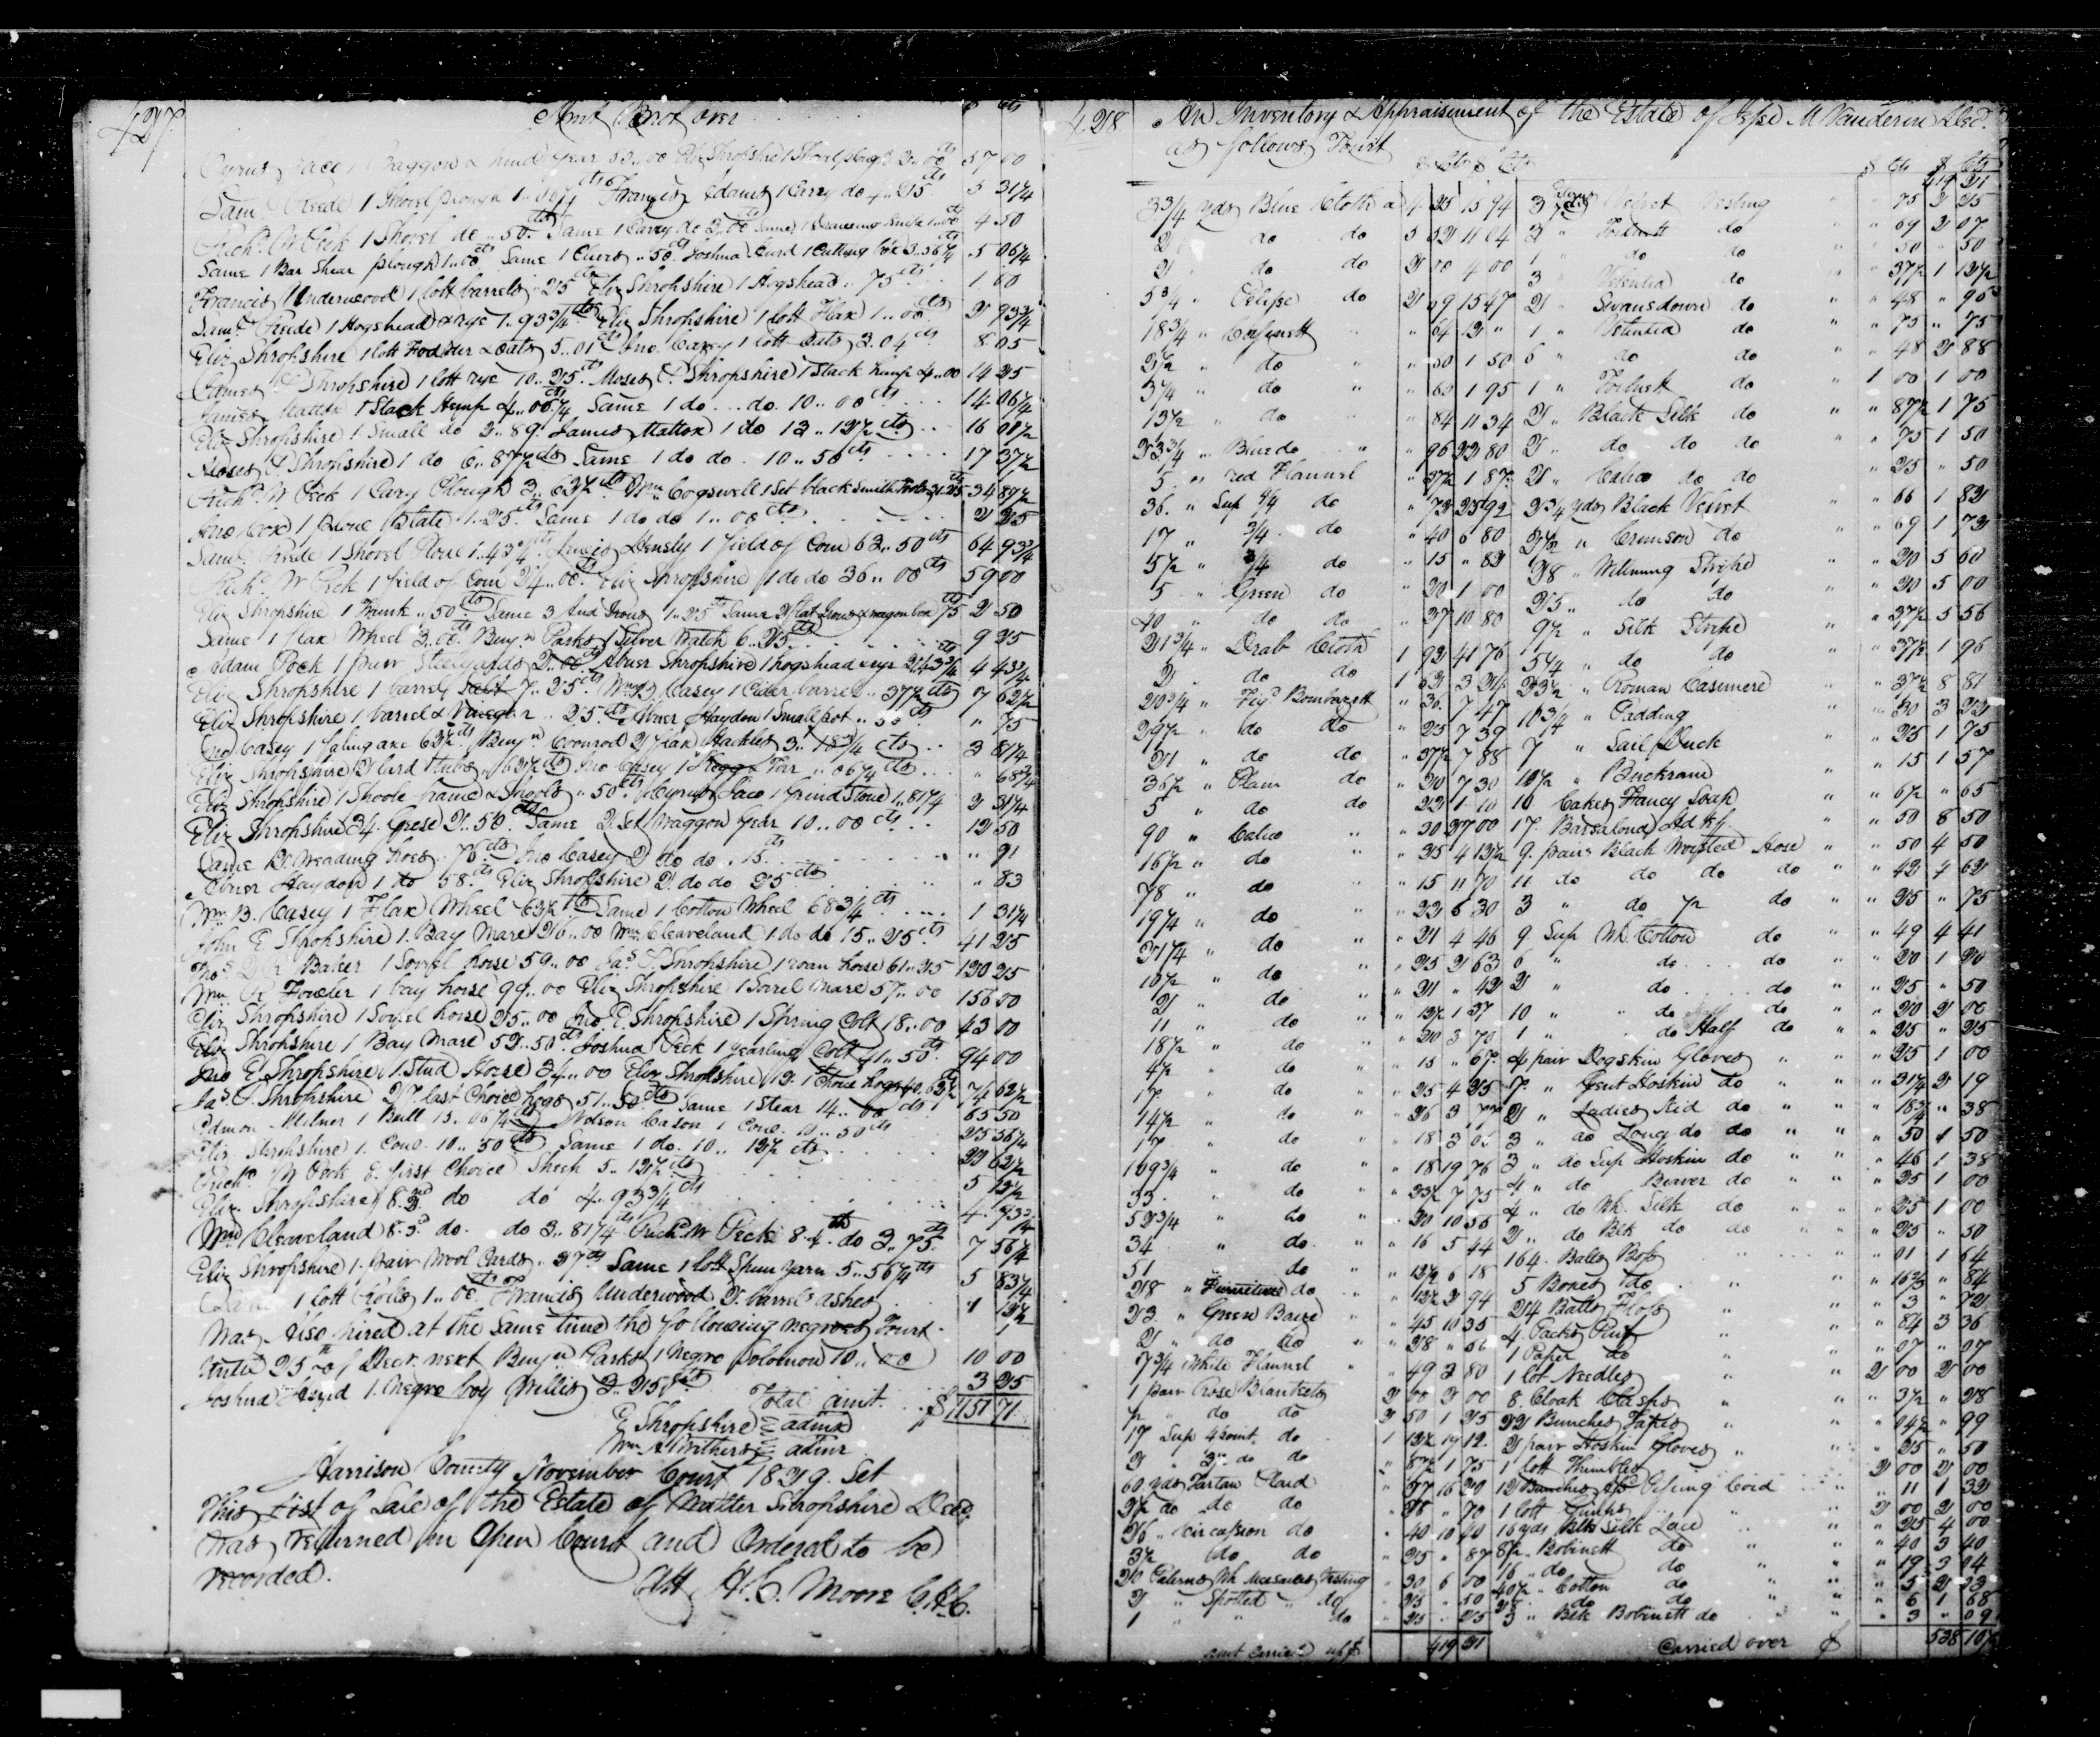 427.
Amt Brot over $ cts
Cyrus Jacc 1 Waggon & hind gear 55..00 Eliz Shropshire 1 Shovel plough 2..00 cts 57 00
Saml Reede 1 Shovel plough 1..06¼ cts Francis Adams 1 Carry do 4..25 cts 5 31¼
Richd W Peck 1 Shovel do ..50 cts Same 1 Carry do 3.. Same 1 Drawing knife 1..00 4 50
Same 1 Bar Shear plough 1..00 cts Same 1 Clevis ..50 cts Joshua Hurd 1 Cutting box 3..56¼ 5 06¼
Francis Underwood 1 lott barrels ..25 Eliz Shropshire 1 Hogshead ..75 cts 1 00
Saml Reede 1 Hogshead & rye 1..93¾ cts Eliz Shropshire 1 lott Flax 1..00 cts 2 93¾
Eliz Shropshire 1 lott Fodder & Oats 5..01 cts Jno. Casey 1 lott Oats 3.04 cts 8 05
James Shropshire 1 lott rye 10..25 cts Moses Shropshire 1 Stack hemp 4..00 14 25
James Mattox 1 Stack Hemp 4..06¼ cts Same 1 do... do. 10..00 cts 14 06¼
Eliz Shropshire 1 Small do 2..89 James Mattox 1 do 13..12½ cts 16 01½
Moses Shropshire 1 do 6..87½ cts Same 1 do do 10..50 cts 17 37½
Richd W Peck 1 Cary Plough 3..62½ cts Wm Cogswell 1 Set black Smith Tools 31.25 34 87½
Jno Cox 1 plow & Slate 1..25 cts Same 1 do do 1..00 cts 2 25
Saml Reede 1 Shovel Plow 2..43¾ cts Lewis Hensly 1 field of Corn 62..50 cts 64 93¾
Richd W Peck 1 field of Corn 24..00 Eliz Shropshire 1 do do 36..00 cts 59 00
Eliz Shropshire 1 Trunk ..50 cts Same 3 And Irons 1..25 cts Same 2 flat Irons & wagon box 75 cts 2 50
Same 1 flax Wheel 3..00 cts Benjn Parks 1 Silver Watch 6..25 cts 9 25
Adam Pock 1 pair Steelyards 2..00 cts Abner Shropshire 1 hogshead & rye 2.43¾ 4 43¾
Eliz Shropshire 1 barrel Salt 7..25 cts Wm B. Casey 1 Cider barrel ..37½ cts 7 62½
Eliz Shropshire 1 barrel & Vinegar ..25 cts Abner Haydon 1 Small pot ..50 cts " 75
Jno Casey 1 falling axe 62½ cts Benjn Coonrod 2 flax Hackles 3..18¾ cts 3 81¼
Eliz Shropshire 2 lard tubs ..62½ cts Jno Casey 1 Kegg Tar ..06¼ cts " 68¾
Eliz Shropshire 1 Spoole frame & Spools ..50 cts Cyrus Jacc 1 grind Stone 1..81¼ 2 31¼
Eliz Shropshire 34 Geese 2..50 cts Same 2 Set Waggon gear 10..00 cts 12 50
Same 2 Weading hoes ..76 cts Jno Casey 2 do do ..15 " 91
Abner Haydon 1 do 58 cts Eliz Shropshire 2 do do 25 cts " 83
Wm B. Casey 1 Flax Wheel 62½ cts Same 1 Cotton Wheel 68¾ cts 1 31¼
John E Shropshire 1 Bay Mare 26..00 Wm Cleaveland 1 do do 15..25 cts 41 25
Baker 1 Sorrel horse 59..00 Jas Shropshire 1 roan horse 61..25 120 25
Wm R Fowler 1 bay horse 99..00 Eliz Shropshire 1 Sorel Mare 57..00 156 00
Eliz Shropshire 1 Sorrel horse 25..00 Jno. E. Shropshire 1 Spring Colt 18..00 43 00
Eliz Shropshire 1 Bay Mare 52..50 cts Joshua Peck 1 yearling Colt 41..50 cts 94 00
Jno E Shropshire 1 Stud Horse 34..00 Eliz Shropshire 1 Choice hogs 40.62½ 74 62½
Jas Shropshire last Choice hogs 51..50 cts Same 1 Stear 14..00 cts 65 50
Edmon Milner 1 Bull 15..06¼ cts Nelson Cason 1 Cow 10..50 cts 25 56¼
Eliz Shropshire 1 Cow 10..50 cts Same 1 do. 10..12½ cts 20 62½
Richd W Peck 8 first Choice Sheep 5..12½ cts 5 12½
Eliz Shropshire 8 2nd do do 4..93¾ cts 4 93¾
Wm Cleaveland 8 3d do. do 3..81¼ cts Richd W Peck 8 4th do 3..75 cts 7 56¼
Eliz Shropshire 1 pair Wool Cards ..27 cts Same 1 lott Spun yarn 5..56¼ cts 5 83¼
Same 1 lott Rolls 1..00 cts Francis Underwood 2 barrels ashes 1 12½
Was Also hired at the Same time the following negroes Towit
Until 25th of Decr. next Benjn Parks 1 Negro Solomon 10..00 10 00
Joshua Hurd 1 Negro boy Willis 3..25 cts 3 25
Total amt. $1151 71
E Shropshire admx
Wm A Withers admr
Harrison County November Court 1829. Sct
This List of Sale of the Estate of Walter Shropshire Decd.
was returned in Open Court and Ordered to be
recorded.
Att H. C. Moore C.H.C.
428 An Inventory & Appraisement of the Estate of Jesse M Vanderen Decd.
as follows Towit
$ Cts $ Cts
3¾ yds Blue Cloth a 4 25 15 94
2 do do 5 52 11 04
2 do do 2 00 4 00
5¾ " Eclipse do 2 69 15 47
18¾ " Cassinett " 64 12 "
2½ " do " 60 1 50
3¼ " do " 60 1 95
13½ " do 84 11 34
23¾ " Blue do " 96 22 80
5 " red Flannel " 37½ 1 87
36 " Sup 4/4 do " 72 25 92
17 " 3/4 do " 40 6 80
5½ " 3/4 do " 15 " 82
5 " Green do " 20 1 00
40 " do do " 27 10 80
21¾ " Drab Cloth 1 92 41 76
2 " do do 1 62 3 24
20¾ " Figd Bombazett " 36 7 47
29½ " do do " 25 7 39
21 " do do " 37½ 7 88
36½ " Plain do " 20 7 30
5 " do do " 22 1 10
90 " Calico " 30 27 00
16½ " do " 25 4 12½
78 " do " 15 11 70
19¼ " do 22 6 30
21¼ " do " 21 4 46
10½ " do " 25 2 63
2 " do " 21 " 42
11 " do " 12½ 1 37
18½ " do " 20 3 70
4½ " do " 15 " 67
17 " do " 25 4 25
14½ " do " 26 3 77
17 " do " 18 3 06
109¾ " do " 18 19 76
33 " do " 23½ 7 75
52¾ " do " 20 10 55
34 " do " 16 5 44
51 " do " 12½ 6 18
28 " Furniture do " 12½ 2 94
23 " Green Baize " 45 10 35
2 " do do " 28 " 56
7¾ White Flannel " 49 3 80
1 pair Rose Blankets 2 00 2 00
½ " do do 2 50 1 25
17 Sup 4 point do 1 12½ 19 12
2 " 3 " do do " 87½ 1 75
60 yds Tartan Plaid " 27 16 20
2½ do do do " 28 " 70
26 " Circassion do " 40 10 40
3½ do do " 25 " 87
20 Paterns Wh Marsailes Vesting " 30 6 00
2 " Spotted " do " 25 " 50
1 " " do " 25 " 25
amt Carried up $ 419 21
$ Cts $ Cts
419 21
3 Paterns Velvet Vesting " 75 2 25
3 " Toilinett do " 69 2 07
1 " do do " 50 " 50
3 " Valentia do " 37½ 1 12½
2 " Swansdown do " 48 " 96
1 " Valentia do " 75 " 75
6 " do do " 48 2 88
1 " Toilinett do 1 00 1 00
2 " Black Silk do " 87½ 1 75
2 " do do do " 75 1 50
2 " Calico do do " 25 " 50
2¾ yds Black Velvet " 66 1 82
2½ " Crimson do " 69 1 73
28 " Wellening Stripe " 20 5 60
25 " do do " 20 5 00
9½ " Silk Stripe " 37½ 3 56
5¼ " do do " 37½ 1 96
23½ " Roman Casemere " 37½ 8 81
10¾ " Padding " 30 3 22
7 " Sail Duck " 25 1 75
10½ " Buckram " 15 1 57
10 Cakes Fancy Soap " 6½ " 65
17 Barsalond Hdkf. " 50 8 50
9 pair Black Worsted Hose " 50 4 50
11 do do do do " 42 4 62
3 " do ½ do " 25 " 75
9 Sup Wh. Cotton do " 49 4 41
6 " do do " 20 1 20
2 " do do " 25 " 50
10 " do do " 20 2 00
1 " do Half do " 25 " 25
4 pair Dogskin Gloves " 25 1 00
7 " Gent Hoskin do " 31¼ 2 19
2 " Ladies Kid do " 18¾ " 38
3 " do Long do do " 50 1 50
3 " do Sup Hoskin do " 46 1 38
4 " do Beaver do " 25 1 00
4 " do Wh. Silk do " 25 1 00
2 " do Blk do do " 25 " 50
164 Balls Bobb " 01 1 64
5 Boxes do " 16⅔ " 84
24 Balls Floss " 3 " 72
4 Packs Pins " 84 3 36
1 Paper do " 07 " 07
1 lot Needles 2 00 2 00
8 Cloak Clasps " 3½ " 28
22 Bunches Tapes " 04½ " 99
2 pair Hoskin Gloves " 25 " 50
1 lott Thimbles 2 00 2 00
12 Bunches Cord " 11 1 32
1 lott 2 00 2 00
16 yds Blk Silk Lace " 25 4 00
8½ " Bobinett do " 40 3 40
16 " do do " 19 3 04
40½ " Cotton do " 5 2 23
28 do do " 6 1 68
3 " Blk Bobinett do " 3 " 09
Carried over $ 528 10½